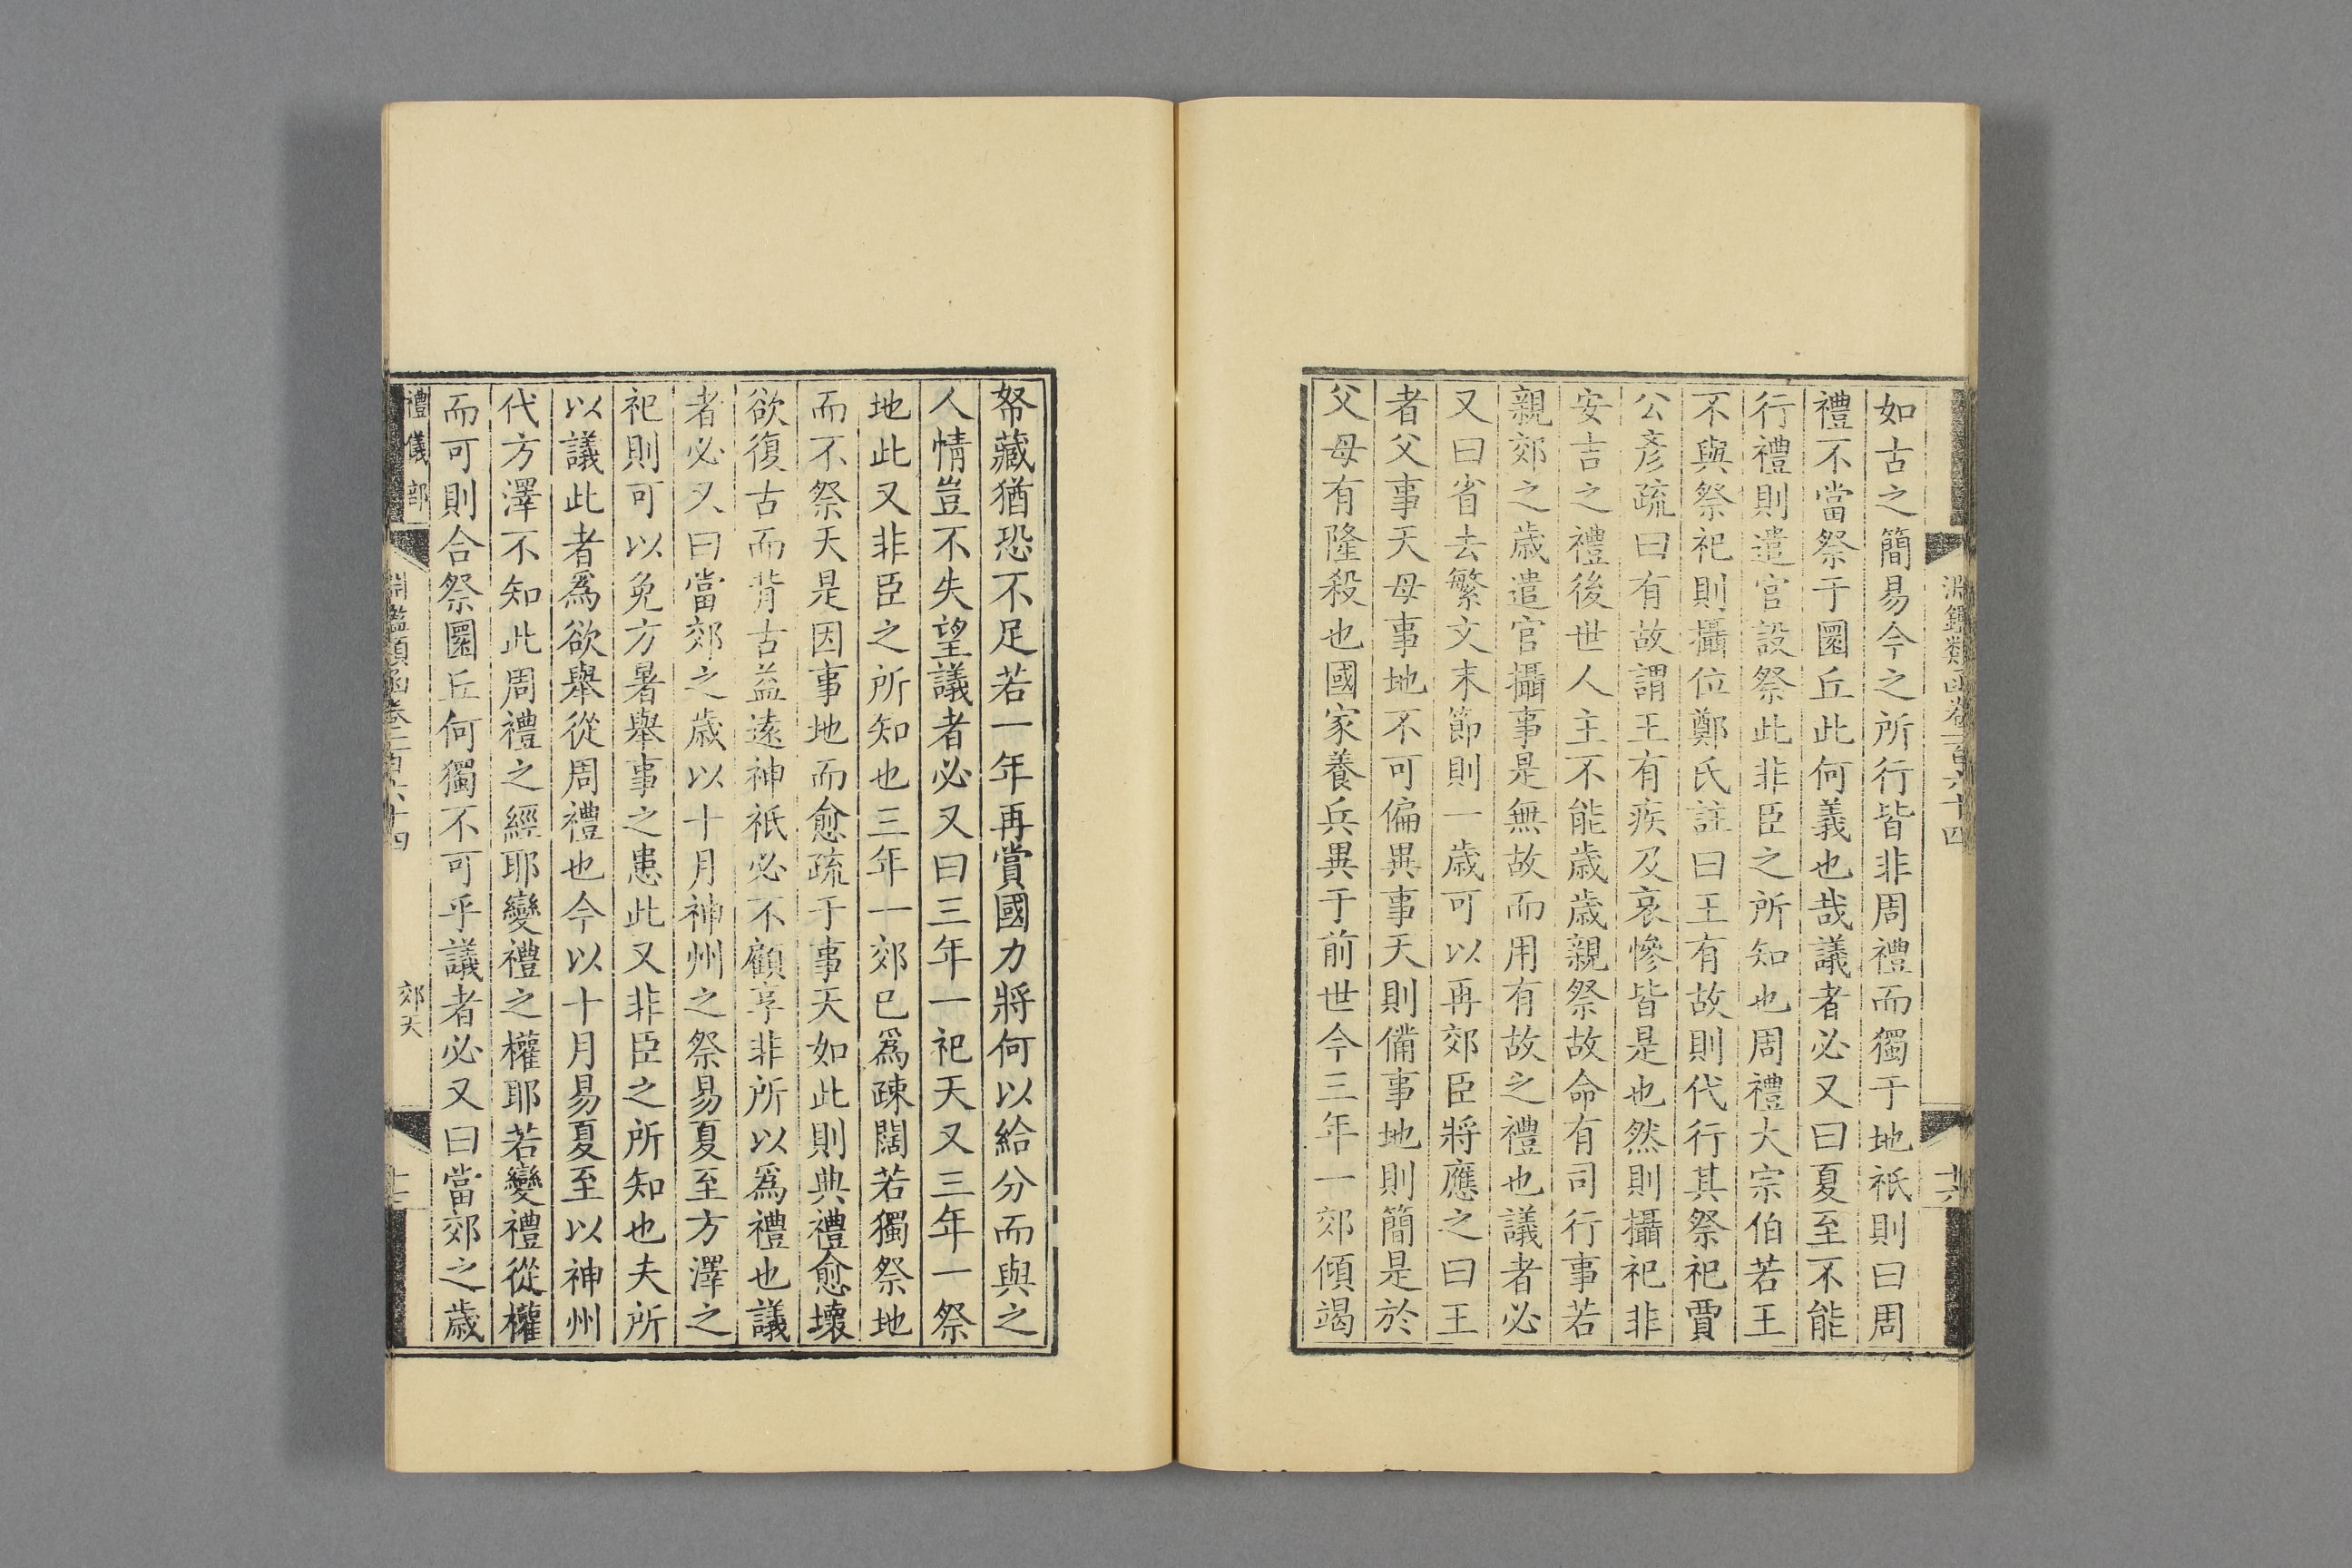 淵鑑類函卷一百六十四
十六
如古之簡易今之所行皆非周禮而獨于地祇則曰周
禮不當祭于圜丘此何義也哉議者必又曰夏至不能
行禮則遣官設祭此非臣之所知也周禮大宗伯若王
不與祭祀則攝位鄭氏註曰王有故則代行其祭祀賈
公彥疏曰有故謂王有疾及哀慘皆是也然則攝祀非
安吉之禮後世人主不能歲歲親祭故命有司行事若
親郊之歲遣官攝事是無故而用有故之禮也議者必
又曰省去繁文末節則一歲可以再郊臣將應之曰王
者父事天母事地不可偏異事天則備事地則簡是於
父母有隆殺也國家養兵異于前世今三年一郊傾竭
帑藏猶恐不足若一年再賞國力將何以給分而與之
人情豈不失望議者必又曰三年一祀天又三年一祭
地此又非臣之所知也三年一郊已爲疎闊若獨祭地
而不祭天是因事地而愈疏于事天如此則典禮愈壞
欲復古而背古益遠神祇必不顧享非所以爲禮也議
者必又曰當郊之歲以十月神州之祭易夏至方澤之
祀則可以免方暑舉事之患此又非臣之所知也夫所
以議此者爲欲舉從周禮也今以十月易夏至以神州
代方澤不知此周禮之經耶變禮之權耶若變禮從權
而可則合祭圜丘何獨不可乎議者必又曰當郊之歲
禮儀部
淵鑑類函卷一百六十四
郊天
十七